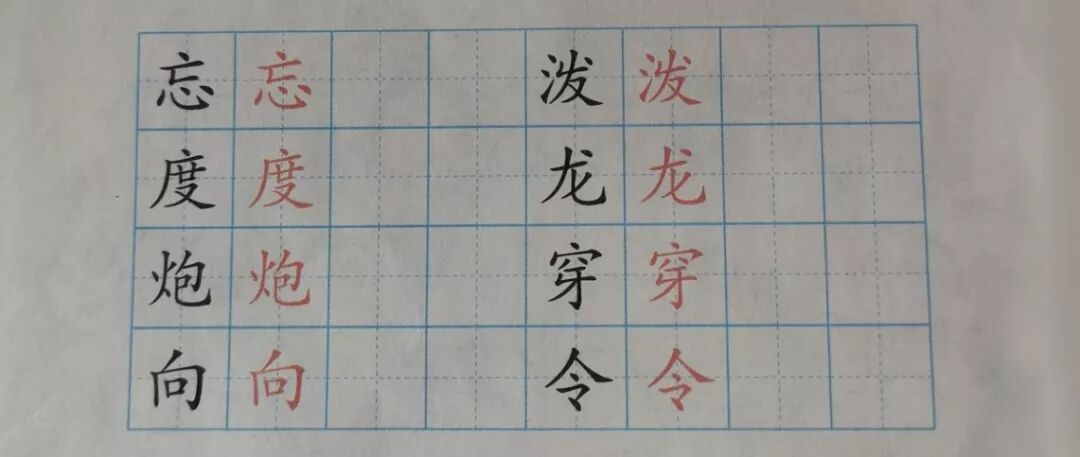 忘 忘 泼 泼
度 度 龙 龙
炮 炮 穿 穿
向 向 令 令